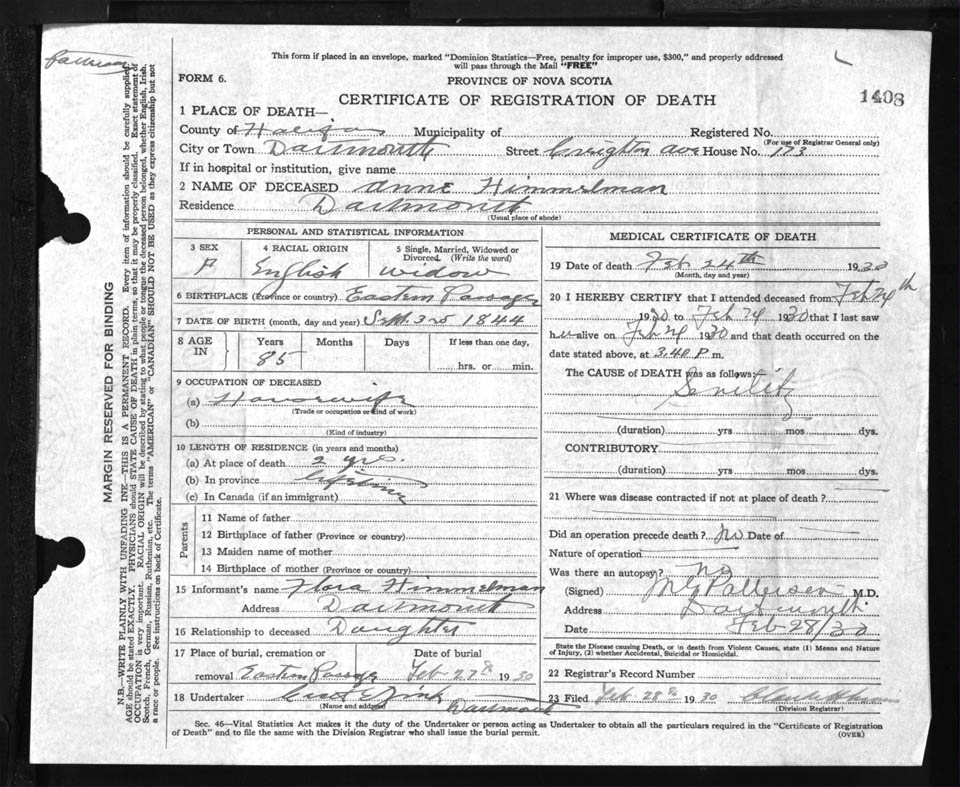 This form if placed in an envelope, marked "Dominion Statistics—Free, penalty for improper use, $300," and properly addressed
will pass through the Mail "FREE"
FORM 6.
PROVINCE OF NOVA SCOTIA
CERTIFICATE OF REGISTRATION OF DEATH
1408
1 PLACE OF DEATH—
County of Halifax Municipality of Registered No.
(For use of Registrar General only)
City or Town Dartmouth Street Creighton Ave House No. 173
If in hospital or institution, give name
2 NAME OF DECEASED Anne Himmelman
Residence Dartmouth
(Usual place of abode)
PERSONAL AND STATISTICAL INFORMATION
3 SEX 4 RACIAL ORIGIN 5 Single, Married, Widowed or
Divorced. (Write the word)
F English widow
6 BIRTHPLACE (Province or country) Eastern Passage
7 DATE OF BIRTH (month, day and year) Sept. 3rd 1844
8 AGE IN Years Months Days If less than one day,
85 hrs. or min.
9 OCCUPATION OF DECEASED
(a) Housewife
(Trade or occupation or kind of work)
(b)
(Kind of industry)
10 LENGTH OF RESIDENCE (in years and months)
(a) At place of death 2 yrs.
(b) In province lifetime
(c) In Canada (if an immigrant)
Parents
11 Name of father
12 Birthplace of father (Province or country)
13 Maiden name of mother
14 Birthplace of mother (Province or country)
15 Informant's name Flora Himmelman
Address Dartmouth
16 Relationship to deceased Daughter
17 Place of burial, cremation or Date of burial
removal Eastern Passage Feb 27th 1930
18 Undertaker Zink
(Name and address) Dartmouth
MEDICAL CERTIFICATE OF DEATH
19 Date of death Feb 24th 1930
(Month, day and year)
20 I HEREBY CERTIFY that I attended deceased from Feb 24th
1930 to Feb 24 1930 that I last saw
her alive on Feb 24 1930 and that death occurred on the
date stated above, at 3.40 P m.
The CAUSE of DEATH was as follows:
Senility
(duration) yrs mos dys.
CONTRIBUTORY
(duration) yrs mos dys.
21 Where was disease contracted if not at place of death?
Did an operation precede death? No Date of
Nature of operation
Was there an autopsy? No
(Signed) Patterson M.D.
Address Dartmouth
Date Feb 28/30
State the Disease causing Death, or in death from Violent Causes, state (1) Means and Nature
of Injury, (2) whether Accidental, Suicidal or Homicidal.
22 Registrar's Record Number
23 Filed Feb. 28th 1930
(Division Registrar)
Sec. 46—Vital Statistics Act makes it the duty of the Undertaker or person acting as Undertaker to obtain all the particulars required in the "Certificate of Registration
of Death" and to file the same with the Division Registrar who shall issue the burial permit.
(OVER)
MARGIN RESERVED FOR BINDING
N.B.—WRITE PLAINLY WITH UNFADING INK—THIS IS A PERMANENT RECORD. Every item of information should be carefully supplied.
AGE should be stated EXACTLY. PHYSICIANS should STATE CAUSE OF DEATH in plain terms, so that it may be properly classified. Exact statement of
OCCUPATION is very important. RACIAL ORIGIN will be described by stating to what people or tongue the deceased person belonged, whether English, Irish,
Scotch, French, German, Russian, Ruthenian, etc. The terms "AMERICAN" or "CANADIAN" SHOULD NOT BE USED as they express citizenship but not
a race or people. See instructions on back of Certificate.